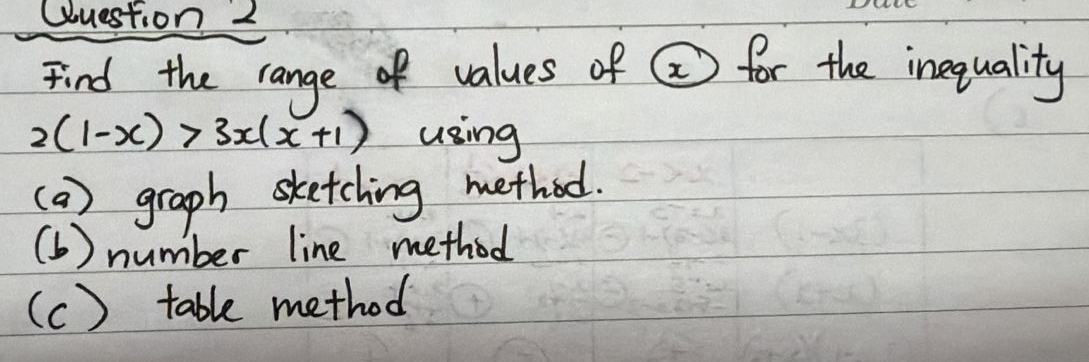 Date
Question 2
Find the range of values of x for the inequality
2(1-x) > 3x(x+1) using
(a) graph sketching method.
(b) number line method
(c) table method